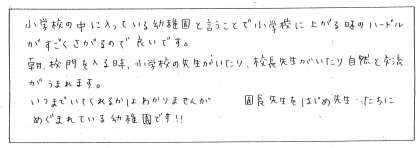 小学校の中に入っている幼稚園と言うことで小学校に上がる時のハードル
がすごくさがるので良いです。
朝、校門を入る時、小学校の先生がいたり、校長先生がいたり自然と交流
がうまれます。
いつまでいてくれるかはわかりませんが 園長先生をはじめ先生たちに
めぐまれている幼稚園です!!